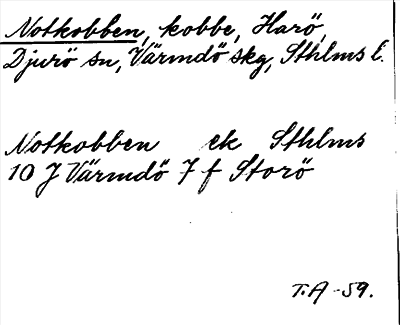 Notkobben, kobbe, Harö,
Djurö sn, Värmdö skg, Sthlms l.
Notkobben ek Sthlms
10 J Värmdö 7 f Storö
T.A -59.